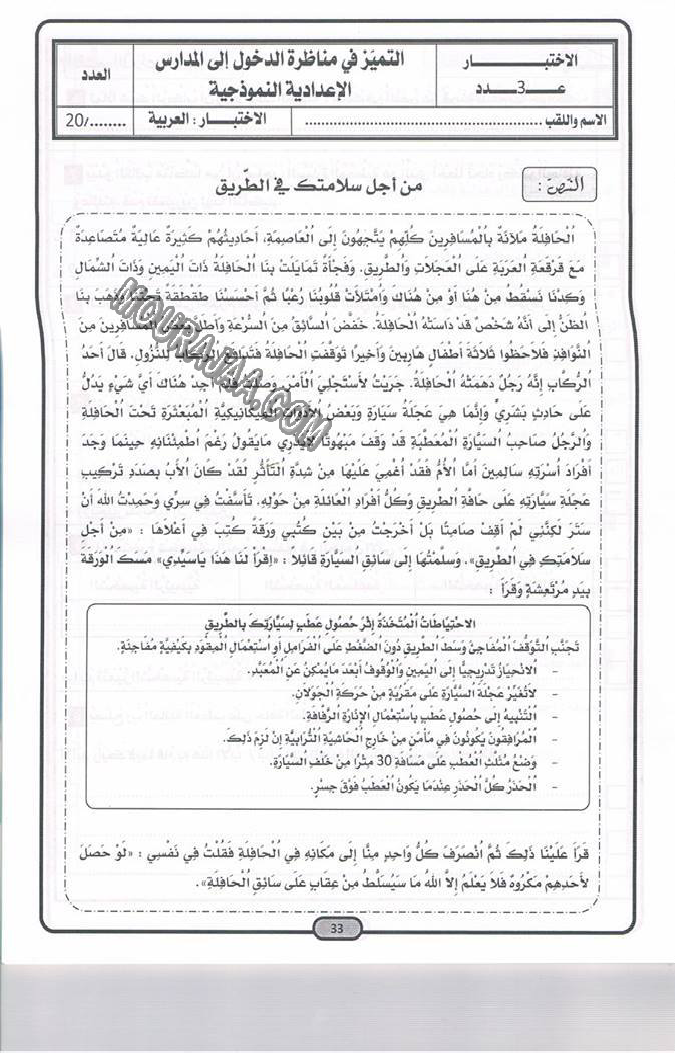 الاختبـــــــــار
عـــــ3ـــــدد
التميّز في مناظرة الدخول إلى المدارس
الإعدادية النموذجية
العدد
الاسم واللقب
الاختبـــار : العربية
20/........
النص :
من أجل سلامتك في الطّريق
اَلْحَافِلَةُ مَلآنَةٌ بِالْمُسَافِرِينَ كُلُّهِمْ يَتَّجِهُونَ إِلَى الْعَاصِمَةِ، أَحَادِيثُهُمْ كَثِيرَةٌ عَالِيَةٌ مُتَصَاعِدَةٌ
مَعَ قَرْقَعَةِ الْعَرَبَةِ عَلَى الْعَجَلَاتِ وَالطَّرِيقِ. وَفَجْأَةً تَمَايَلَتْ بِنَا الْحَافِلَةُ ذَاتَ الْيَمِينِ وَذَاتَ الشِّمَالِ
وَكِدْنَا نَسْقُطُ مِنْ هُنَا أَوْ مِنْ هُنَاكَ وَامْتَلَأَتْ قُلُوبُنَا رُعْبًا ثُمَّ أَحْسَسْنَا طَقْطَقَةً تَحْتَنَا وَذَهَبَ بِنَا
الظَّنُّ إِلَى أَنَّهُ شَخْصٌ قَدْ دَاسَتْهُ الْحَافِلَةُ. خَفَّضَ السَّائِقُ مِنَ السُّرْعَةِ وَأَطَلَّ بَعْضُ الْمُسَافِرِينَ مِنَ
النَّوَافِذِ فَلَاحَظُوا ثَلَاثَةَ أَطْفَالٍ هَارِبِينَ وَأَخِيرًا تَوَقَّفَتِ الْحَافِلَةُ فَتَدَافَعَ الرُّكَّابُ لِلنُّزُولِ. قَالَ أَحَدُ
الرُّكَّابِ إِنَّهُ رَجُلٌ دَهَمَتْهُ الْحَافِلَةُ. جَرَيْتُ لِأَسْتَجْلِيَ الْأَمْرَ وَصَلْتُ فَلَمْ أَجِدْ هُنَاكَ أَيَّ شَيْءٍ يَدُلُّ
عَلَى حَادِثٍ بَشَرِيٍّ وَإِنَّمَا هِيَ عَجَلَةُ سَيَّارَةٍ وَبَعْضُ الْأَدَوَاتِ الْمِيكَانِيكِيَّةِ الْمُبَعْثَرَةِ تَحْتَ الْحَافِلَةِ
وَالرَّجُلُ صَاحِبُ السَّيَّارَةِ الْمُعَطَّبَةِ قَدْ وَقَفَ مَبْهُوتًا لَايَدْرِي مَايَقُولُ رَغْمَ اطْمِئْنَانِهِ حِينَمَا وَجَدَ
أَفْرَادَ أُسْرَتِهِ سَالِمِينَ أَمَّا الْأُمُّ فَقَدْ أُغْمِيَ عَلَيْهَا مِنْ شِدَّةِ التَّأَثُّرِ لَقَدْ كَانَ الْأَبُ بِصَدَدِ تَرْكِيبِ
عَجَلَةِ سَيَّارَتِهِ عَلَى حَافَّةِ الطَّرِيقِ وَكُلُّ أَفْرَادِ الْعَائِلَةِ مِنْ حَوْلِهِ. تَأَسَّفْتُ فِي سِرِّي وَحَمِدْتُ اللَّهَ أَنْ
سَتَرَ لَكِنَّنِي لَمْ أَقِفْ صَامِتًا بَلْ أَخْرَجْتُ مِنْ بَيْنِ كُتُبِي وَرَقَةً كُتِبَ فِي أَعْلَاهَا : «مِنْ أَجْلِ
سَلَامَتِكَ فِي الطَّرِيقِ». وَسَلَّمْتُهَا إِلَى سَائِقِ السَّيَّارَةِ قَائِلًا : «إِقْرَأْ لَنَا هَذَا يَاسَيِّدِي» مَسَكَ الْوَرَقَةَ
بِيَدٍ مُرْتَعِشَةٍ وَقَرَأَ :
الاِحْتِيَاطَاتُ الْمُتَّخَذَةُ إِثْرَ حُصُولِ عَطَبٍ لِسَيَّارَتِكَ بِالطَّرِيقِ
تَجَنَّبِ التَّوَقُّفَ الْمُفَاجِئَ وَسَطَ الطَّرِيقِ دُونَ الضَّغْطِ عَلَى الْفَرَامِلِ أَوِ اسْتِعْمَالِ الْمِقْوَدِ بِكَيْفِيَّةٍ مُفَاجِئَةٍ.
- الاِنْحِيَازُ تَدْرِيجِيًّا إِلَى الْيَمِينِ وَالْوُقُوفُ أَبْعَدَ مَايُمْكِنُ عَنِ الْمُعَبَّدِ.
- لَاتُغَيِّرْ عَجَلَةَ السَّيَّارَةِ عَلَى مَقْرُبَةٍ مِنْ حَرَكَةِ الْجَوَلَانِ.
- التَّنْبِيهُ إِلَى حُصُولِ عَطَبٍ بِاسْتِعْمَالِ الْإِنَارَةِ الرَّفَّافَةِ.
- الْمُرَافِقُونَ يَكُونُونَ فِي مَأْمَنٍ مِنْ خَارِجِ الْحَاشِيَةِ التُّرَابِيَّةِ إِنْ لَزِمَ ذَلِكَ.
- وَضْعُ مُثَلَّثِ الْعَطَبِ عَلَى مَسَافَةِ 30 مِتْرًا مِنْ خَلْفِ السَّيَّارَةِ.
- الْحَذَرُ كُلُّ الْحَذَرِ عِنْدَمَا يَكُونُ الْعَطَبُ فَوْقَ جِسْرٍ.
قَرَأَ عَلَيْنَا ذَلِكَ ثُمَّ انْصَرَفَ كُلُّ وَاحِدٍ مِنَّا إِلَى مَكَانِهِ فِي الْحَافِلَةِ فَقُلْتُ فِي نَفْسِي : «لَوْ حَصَلَ
لِأَحَدِهِمْ مَكْرُوهٌ فَلَا يَعْلَمُ إِلَّا اللَّهُ مَا سَيُسَلَّطُ مِنْ عِقَابٍ عَلَى سَائِقِ الْحَافِلَةِ».
33
MOURAJAA.COM